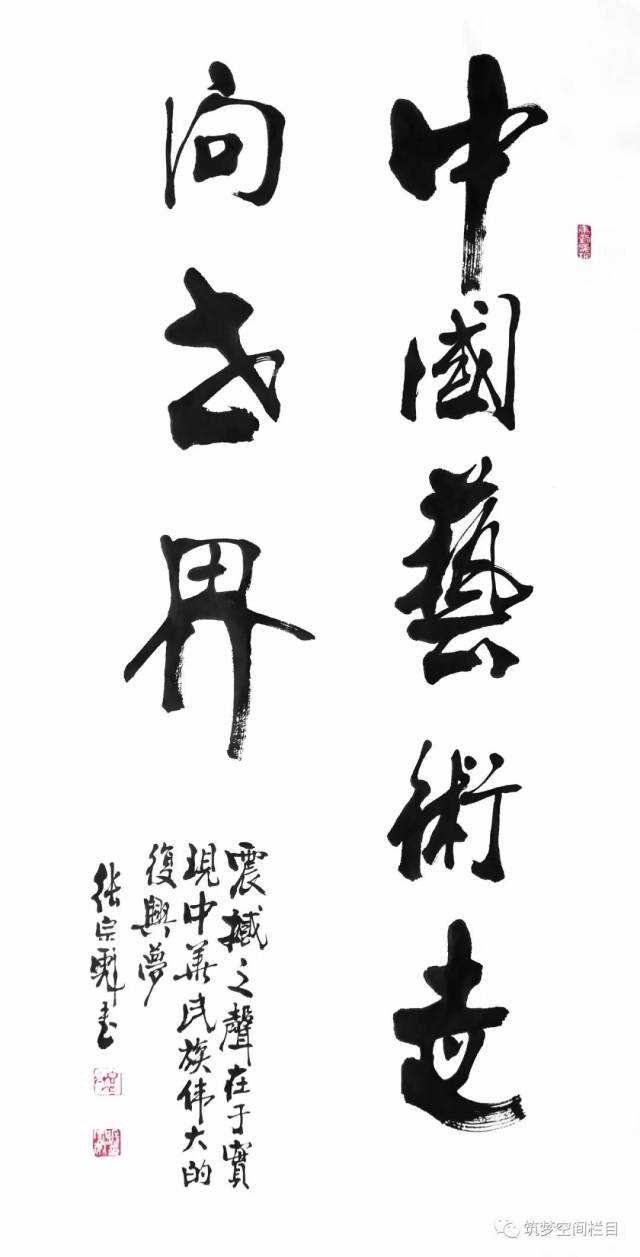 中國藝術走
向世界
震撼之聲在于實
現中華民族偉大的
復興夢
张宗書
筑梦空间栏目